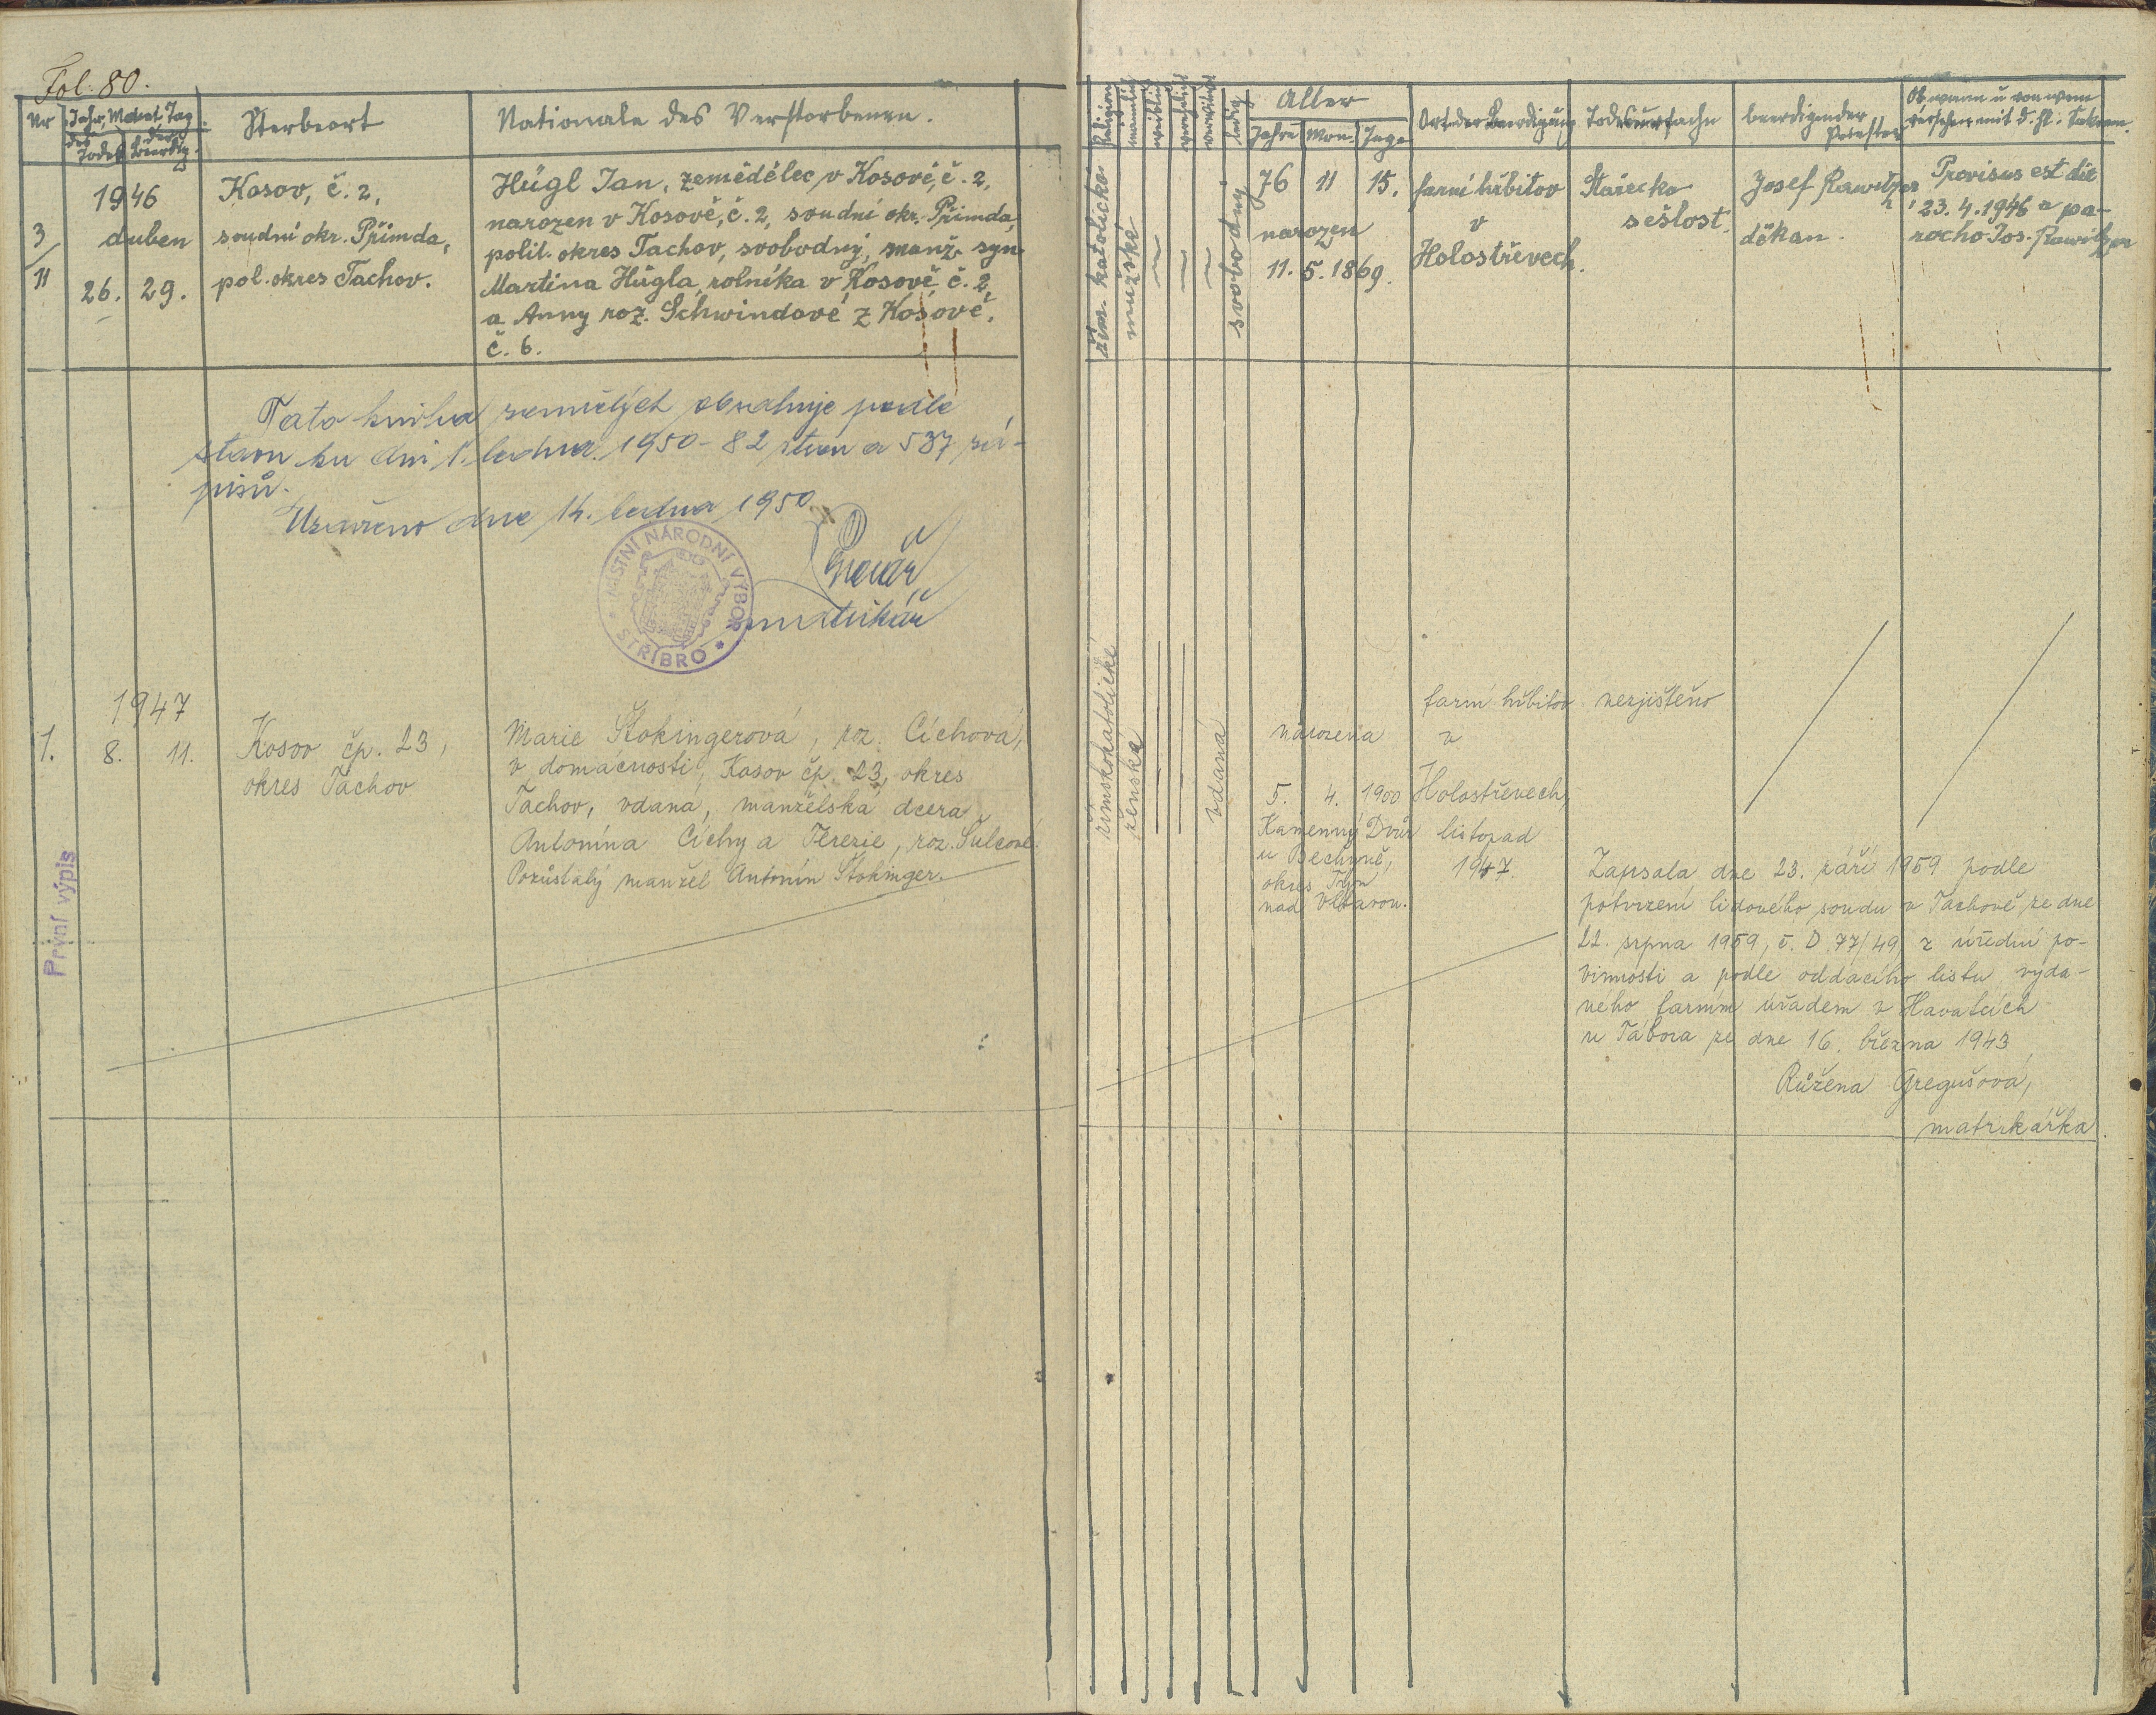 Fol. 80.
Nr
Jahr, Monat, Tag
des Todes
der Beerdig.
Sterbeort
Nationale des Verstorbenen.
1946
duben
3/11
26. 29.
Kosov, č. 2,
soudní okr. Přimda,
pol. okres Tachov.
Hügl Jan, zemědělec v Kosově, č. 2,
narozen v Kosově, č. 2, soudní okr. Přimda,
polit. okres Tachov, svobodný, manž. syn
Martina Hügla, rolníka v Kosově č. 2,
a Anny roz. Schwindové z Kosově,
č. 6.
Tato kniha zemřelých obsahuje podle
stavu ku dni 1. ledna 1950 - 82 stran a 537 zá-
pisů.
Uzavřeno dne 14. ledna 1950
matrikář
MÍSTNÍ NÁRODNÍ VÝBOR
* STŘÍBRO *
1947
1. 8. 11.
Kosov čp. 23,
okres Tachov
Marie Štokingerová, roz. Cíchová,
v domácnosti, Kosov čp. 23, okres
Tachov, vdaná, manželská dcera
Antonína Cíchy a Terezie, roz. Šulcové.
Pozůstalý manžel Antonín Štokinger.
První výpis
Religion
männlich
weiblich
verehelicht
verwitwet
ledig
Alter
Jahre
Mon.
Tage
Ort der Beerdigung
Todesursache
beerdigender
Priester
Ob, wann u. von wem
versehen mit d. hl. Sakram.
řím. katolické
mužské
svobodný
76 11 15.
narozen
11. 5. 1869.
farní hřbitov
v
Holostřevech.
Stařecká
sešlost.
Josef Rawitzer
děkan.
Provisus est die
23. 4. 1946 a pa-
rocho Jos. Rawitzer
římskokatolické
ženská
vdaná
narozena
5. 4. 1900
Kamenný Dvůr
u Bechyně,
okres Týn
nad Vltavou.
farní hřbitov
v
Holostřevech,
listopad
1947.
nezjištěno
Zapsala dne 23. září 1959 podle
potvrzení lidového soudu v Tachově ze dne
22. srpna 1959, č. D 77/49 z úřední po-
vinnosti a podle oddacího listu vyda-
ného farním úřadem v Havatcích
u Tábora ze dne 16. března 1943
Růžena Gregušová,
matrikářka.